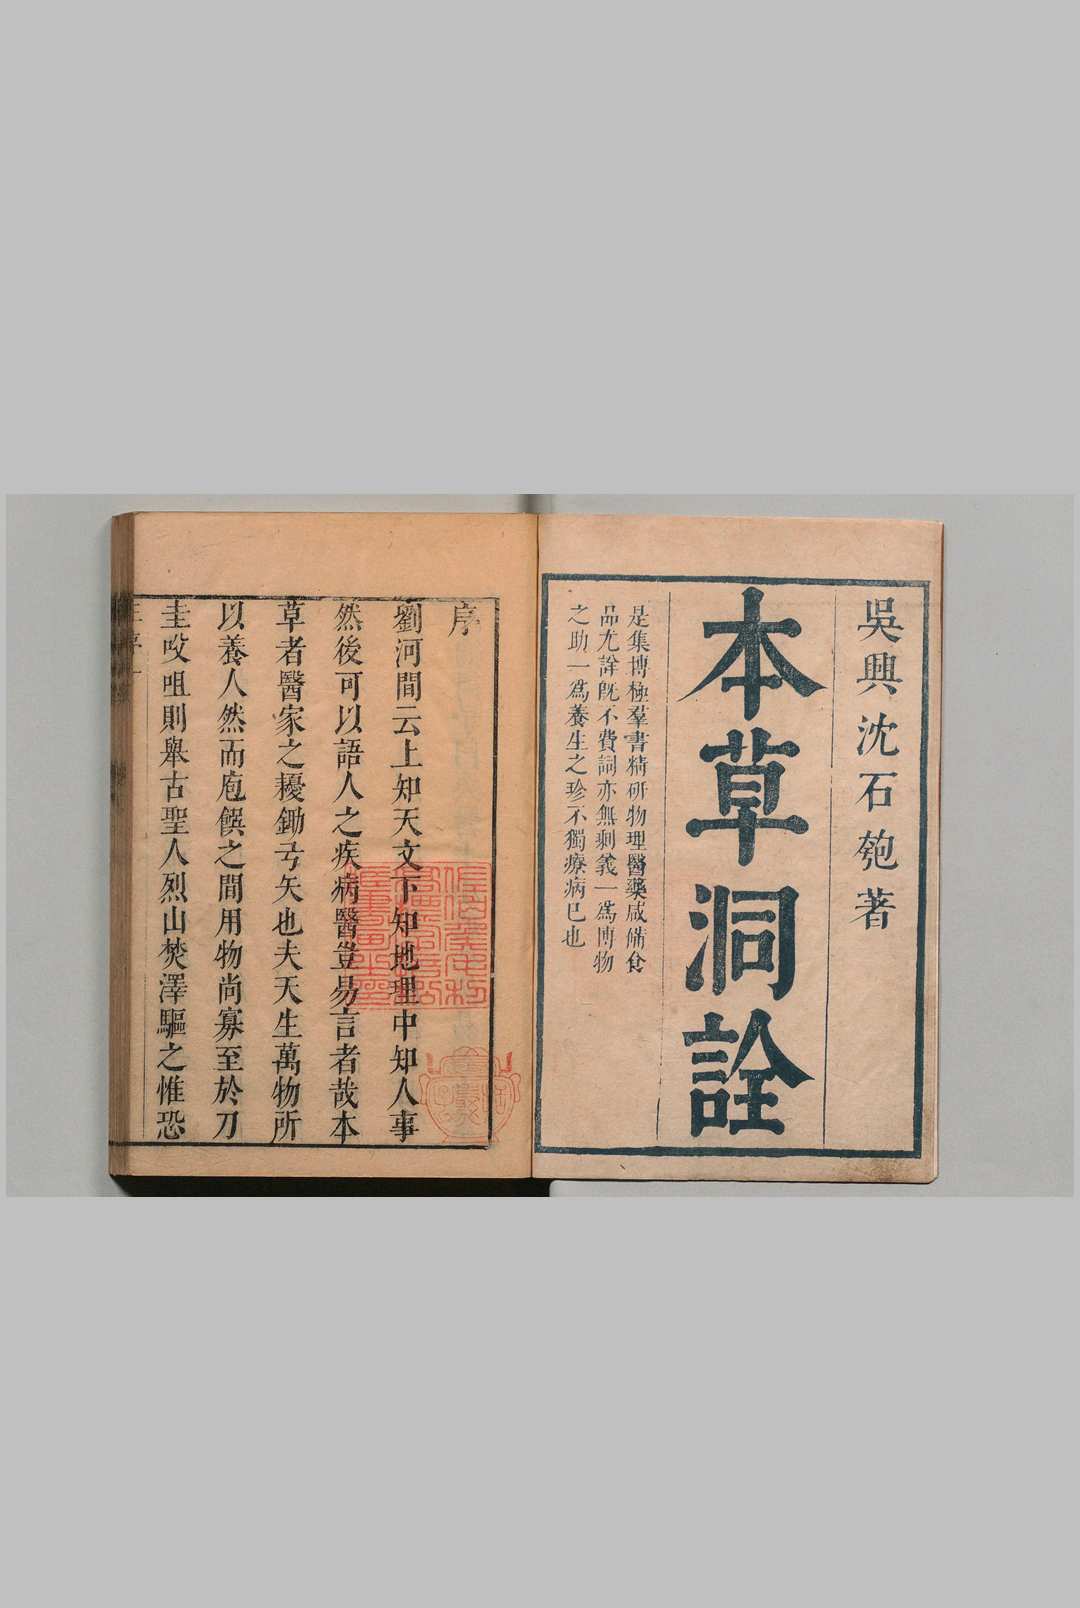 吳興沈石匏著
本草洞詮
是集博極羣書精研物理醫藥咸備食
品尤詮既不費詞亦無剩義一爲博物
之助一爲養生之珍不獨療病已也
序
劉河間云上知天文下知地理中知人事
然後可以語人之疾病醫豈易言者哉本
草者醫家之耰鋤弓矢也夫天生萬物所
以養人然而庖饌之間用物尚寡至於刀
圭㕮咀則舉古聖人烈山焚澤驅之惟恐